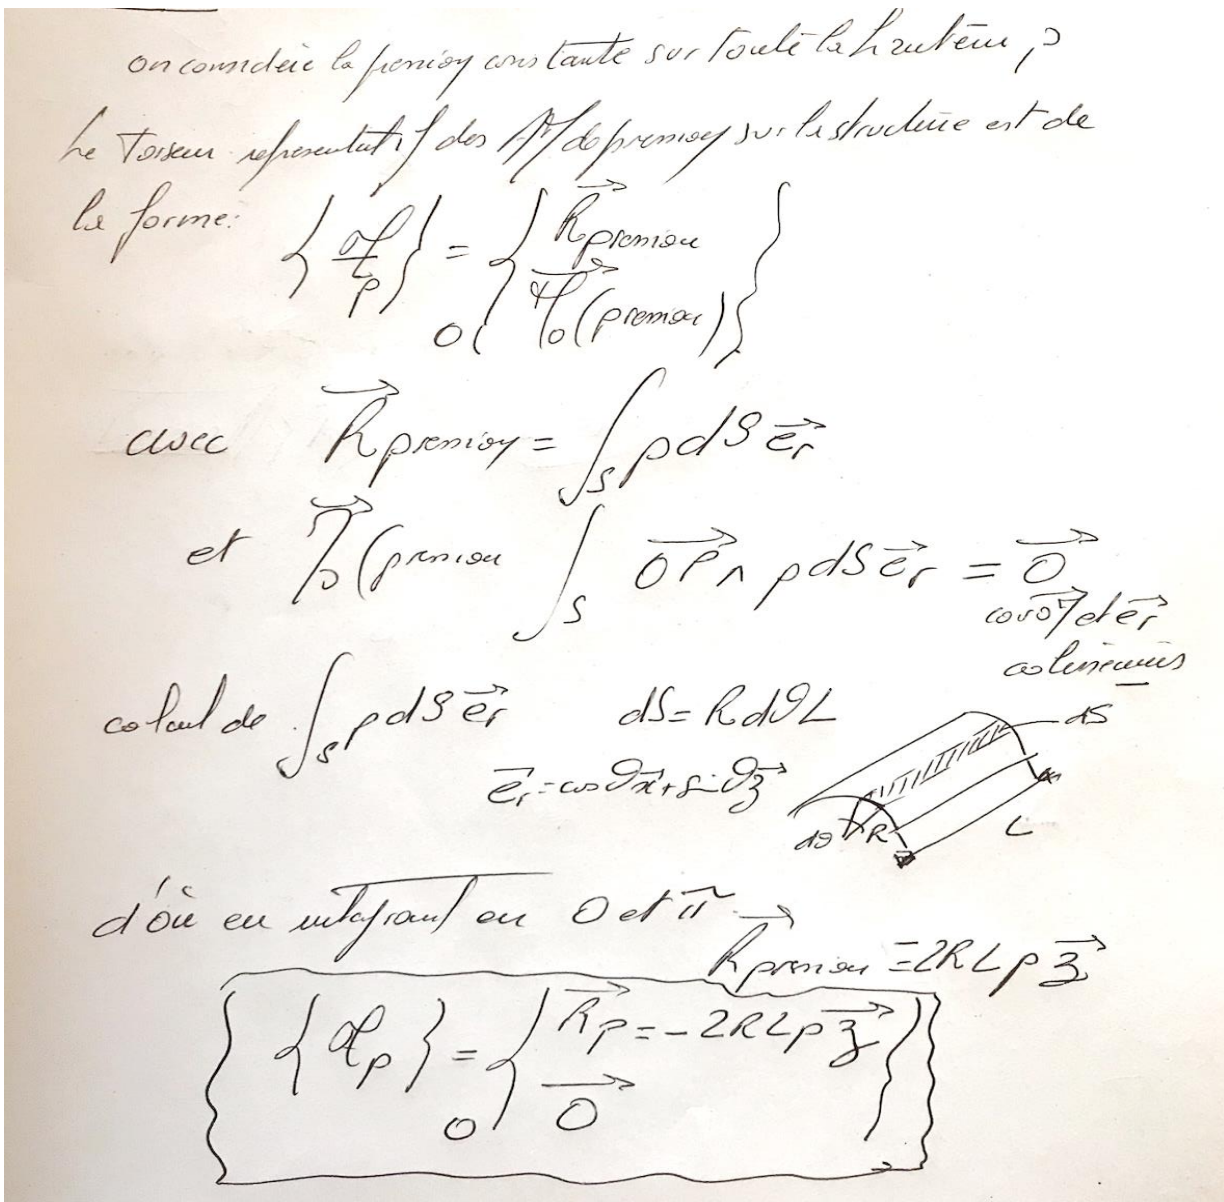 on considère la pression constante sur toute la hauteur, p
Le Torseur représentatif des AM de pression sur la structure est de
la forme:
{ 𝒯 p } = O { R⃗ pression
M⃗o (pression) }
avec R⃗ pression = ∫S p dS e⃗r
et M⃗o (pression ∫S OP⃗ ∧ p dS e⃗r = 0⃗
car OP⃗ et e⃗r
colinéaires
calcul de ∫S p dS e⃗r dS = R dθ L
dS
e⃗r = cos θ x⃗ + sin θ z⃗
dθ R L
d'où en intégrant en 0 et π
R⃗ pression = 2RLp z⃗
{ 𝒯p } = O { R⃗p = -2RLp z⃗
0⃗ }